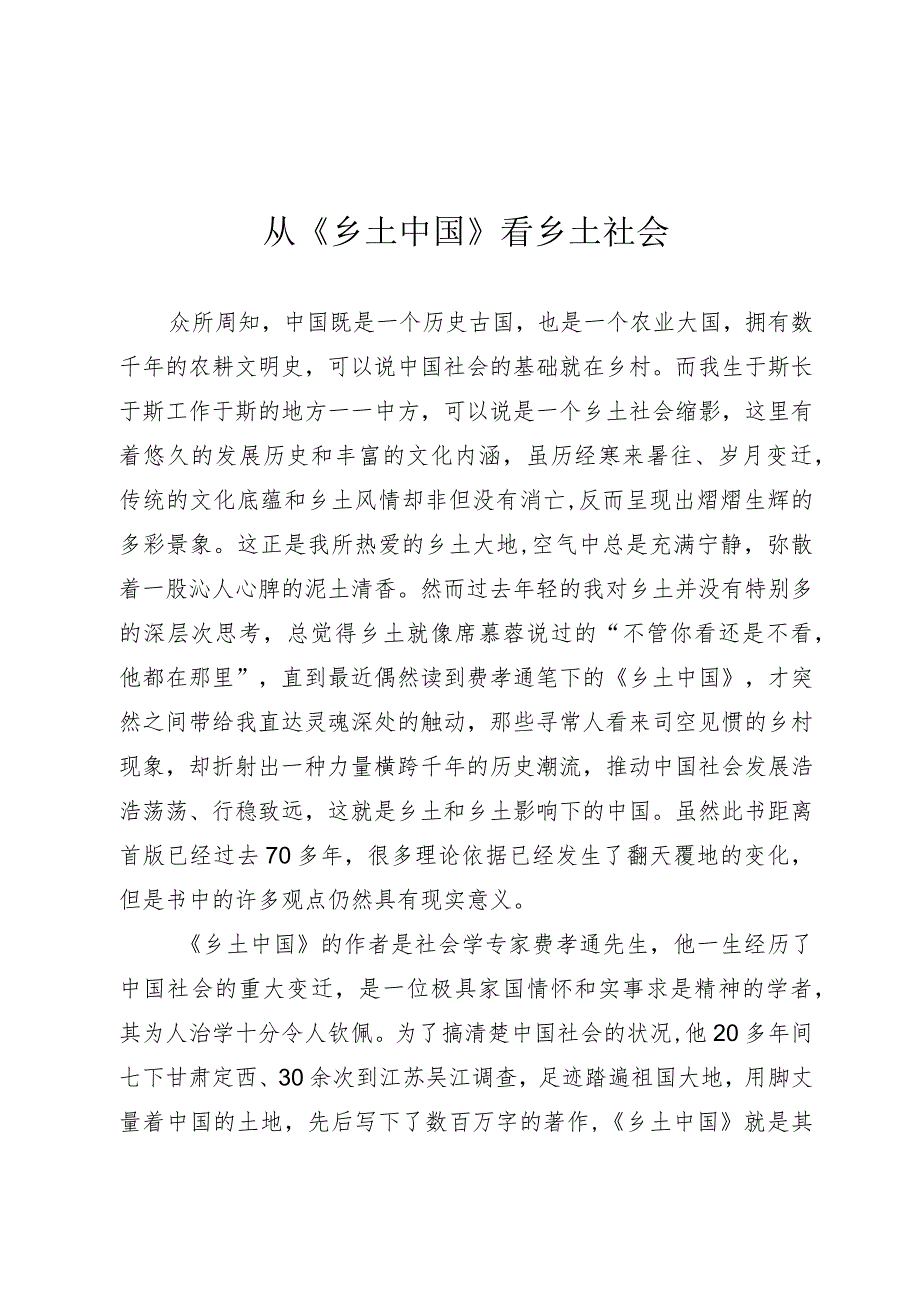 从《乡土中国》看乡土社会
众所周知，中国既是一个历史古国，也是一个农业大国，拥有数
千年的农耕文明史，可以说中国社会的基础就在乡村。而我生于斯长
于斯工作于斯的地方一一中方，可以说是一个乡土社会缩影，这里有
着悠久的发展历史和丰富的文化内涵，虽历经寒来暑往、岁月变迁，
传统的文化底蕴和乡土风情却非但没有消亡,反而呈现出熠熠生辉的
多彩景象。这正是我所热爱的乡土大地,空气中总是充满宁静，弥散
着一股沁人心脾的泥土清香。然而过去年轻的我对乡土并没有特别多
的深层次思考，总觉得乡土就像席慕蓉说过的“不管你看还是不看，
他都在那里”，直到最近偶然读到费孝通笔下的《乡土中国》，才突
然之间带给我直达灵魂深处的触动，那些寻常人看来司空见惯的乡村
现象，却折射出一种力量横跨千年的历史潮流，推动中国社会发展浩
浩荡荡、行稳致远，这就是乡土和乡土影响下的中国。虽然此书距离
首版已经过去70多年，很多理论依据已经发生了翻天覆地的变化，
但是书中的许多观点仍然具有现实意义。
《乡土中国》的作者是社会学专家费孝通先生，他一生经历了
中国社会的重大变迁，是一位极具家国情怀和实事求是精神的学者，
其为人治学十分令人钦佩。为了搞清楚中国社会的状况,他20多年间
七下甘肃定西、30余次到江苏吴江调查，足迹踏遍祖国大地，用脚丈
量着中国的土地，先后写下了数百万字的著作,《乡土中国》就是其